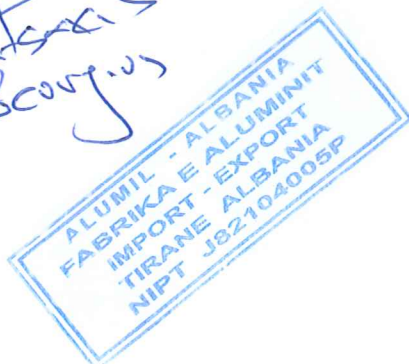 ALUMIL - ALBANIA
FABRIKA E ALUMINIT
IMPORT - EXPORT
TIRANE ALBANIA
NIPT J82104005P